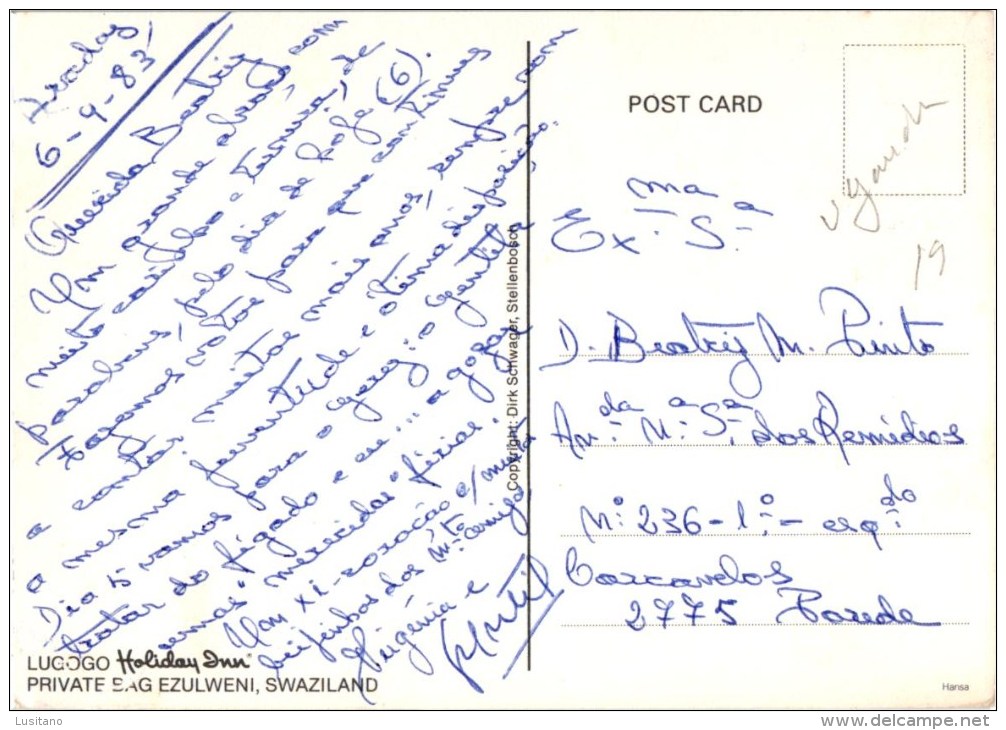 6-9-83
Querida Beatriz
Um grande abraço com
muito carinho e ternura, de
parabens, pelo dia de hoje (6).
Fazemos votos para que continues
a contar muitos mais anos, sempre com
a mesma juventude e ótima disposição.
Dia 15 vamos para o gerez: o gentil a
tratar do fígado e eu... a gozar
umas "merecidas" férias.
Um xi-coração e
beijinhos dos mto amigos
Eugénia e
Gentil
LUGOGO Holiday Inn
PRIVATE BAG EZULWENI, SWAZILAND
Copyright: Dirk Schwager, Stellenbosch
POST CARD
19
Ex.ma S.a
D. Beatriz M. Pinto
Av.da N.a S.a dos Remédios
N.º 236-1.º- esq.do
Carcavelos
2775 Parede
Hansa
Lusitano
www.delcampe.net